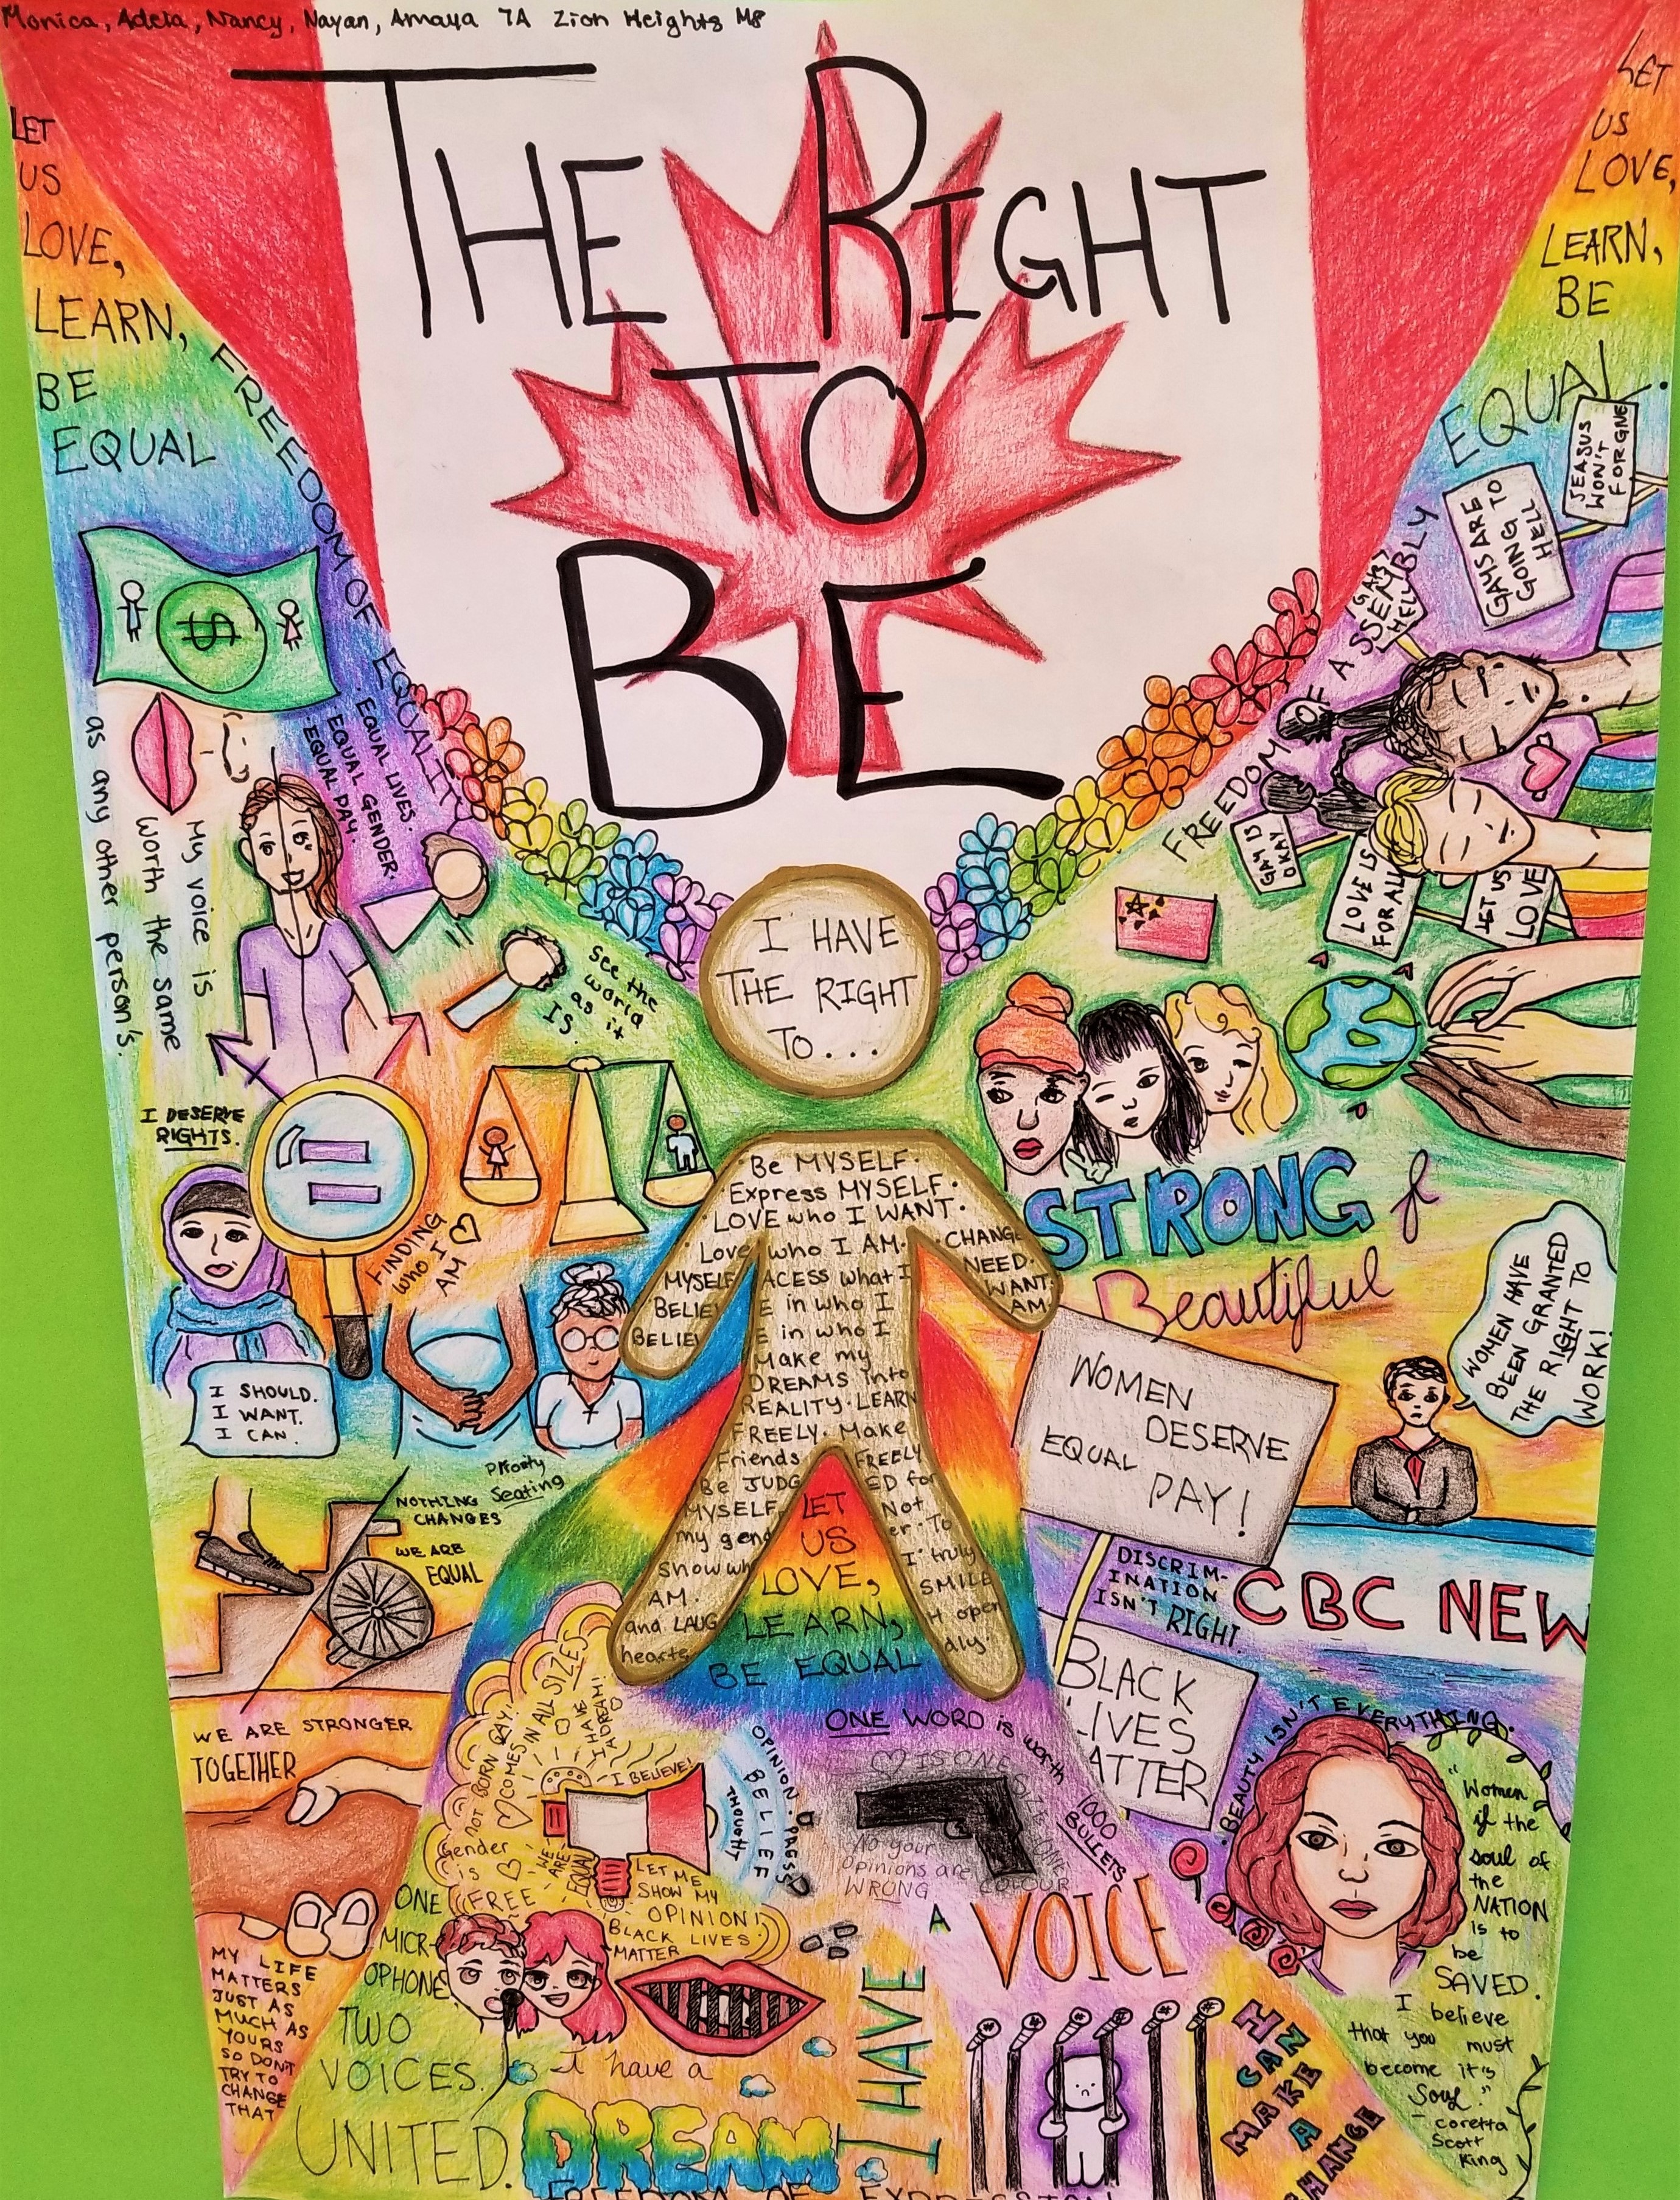 Monica, Adela, Nancy, Nayan, Amaya 7A Zion Heights MS
THE RIGHT
TO
BE
LET
US
LOVE,
LEARN,
BE
EQUAL
LET
US
LOVE,
LEARN,
BE
EQUAL.
FREEDOM OF EQUALITY
· EQUAL LIVES.
· EQUAL GENDER.
· EQUAL PAY.
$
My voice is
worth the same
as any other person's.
see the
world
as it
IS.
I DESERVE
RIGHTS.
=
FINDING
who I
AM
I SHOULD.
I WANT.
I CAN.
Priorty
Seating
NOTHING
CHANGES
WE ARE
EQUAL
WE ARE STRONGER
TOGETHER
MY LIFE
MATTERS
JUST AS
MUCH AS
YOURS
SO DON'T
TRY TO
CHANGE
THAT
JEASUS
WON'T
FORGNE
GAYS ARE
GOING TO
HELL
FREEDOM OF ASSEMBLY
GAY IS
OKAY
LOVE IS
FOR ALL
LET US
LOVE
I HAVE
THE RIGHT
TO...
· Be MYSELF ·
· Express MYSELF ·
· LOVE who I WANT ·
· Love who I AM · · CHANGE
MYSELF ACESS what I NEED ·
BELIEVE in who I WANT ·
BELIEVE in who I AM ·
Make my
DREAMS into
REALITY · LEARN
FREELY · Make
Friends FREELY
Be JUDGED for
MYSELF, Not
my gender · To
show who I truly
AM · SMILE
and LAUGH open
hearte dly
LET
US
LOVE,
LEARN,
BE EQUAL
STRONG &
Beautiful
WOMEN
DESERVE
EQUAL PAY!
WOMEN HAVE
BEEN GRANTED
THE RIGHT TO
WORK!
DISCRIM-
INATION
ISN'T RIGHT
CBC NEW
BLACK
LIVES
MATTER
· BEAUTY ISN'T EVERYTHING.
"Women
if the
soul of
the
NATION
is to
be
SAVED.
I believe
that you must
become it's
Soul."
- Coretta
Scott
King
ONE WORD is worth 1000 BULLETS
IS ONE SIZE · ONE COLOUR
No your
Opinions are
WRONG
OPINION · PAGSS
BELIEF
THOUGHT
COMES IN ALL SIZES
I HAVE
A DREAM!
I BELIEVE!
NOT BORN GAY!
Gender
is
FREE
WE
ARE
EQUAL
LET ME
SHOW MY
OPINION!
BLACK LIVES
MATTER
ONE
MICR-
OPHONE.
TWO
VOICES.
UNITED.
I have a
DREAM
I HAVE
A VOICE
I CAN
MAKE
A
CHANGE
FREEDOM OF EXPRESSION